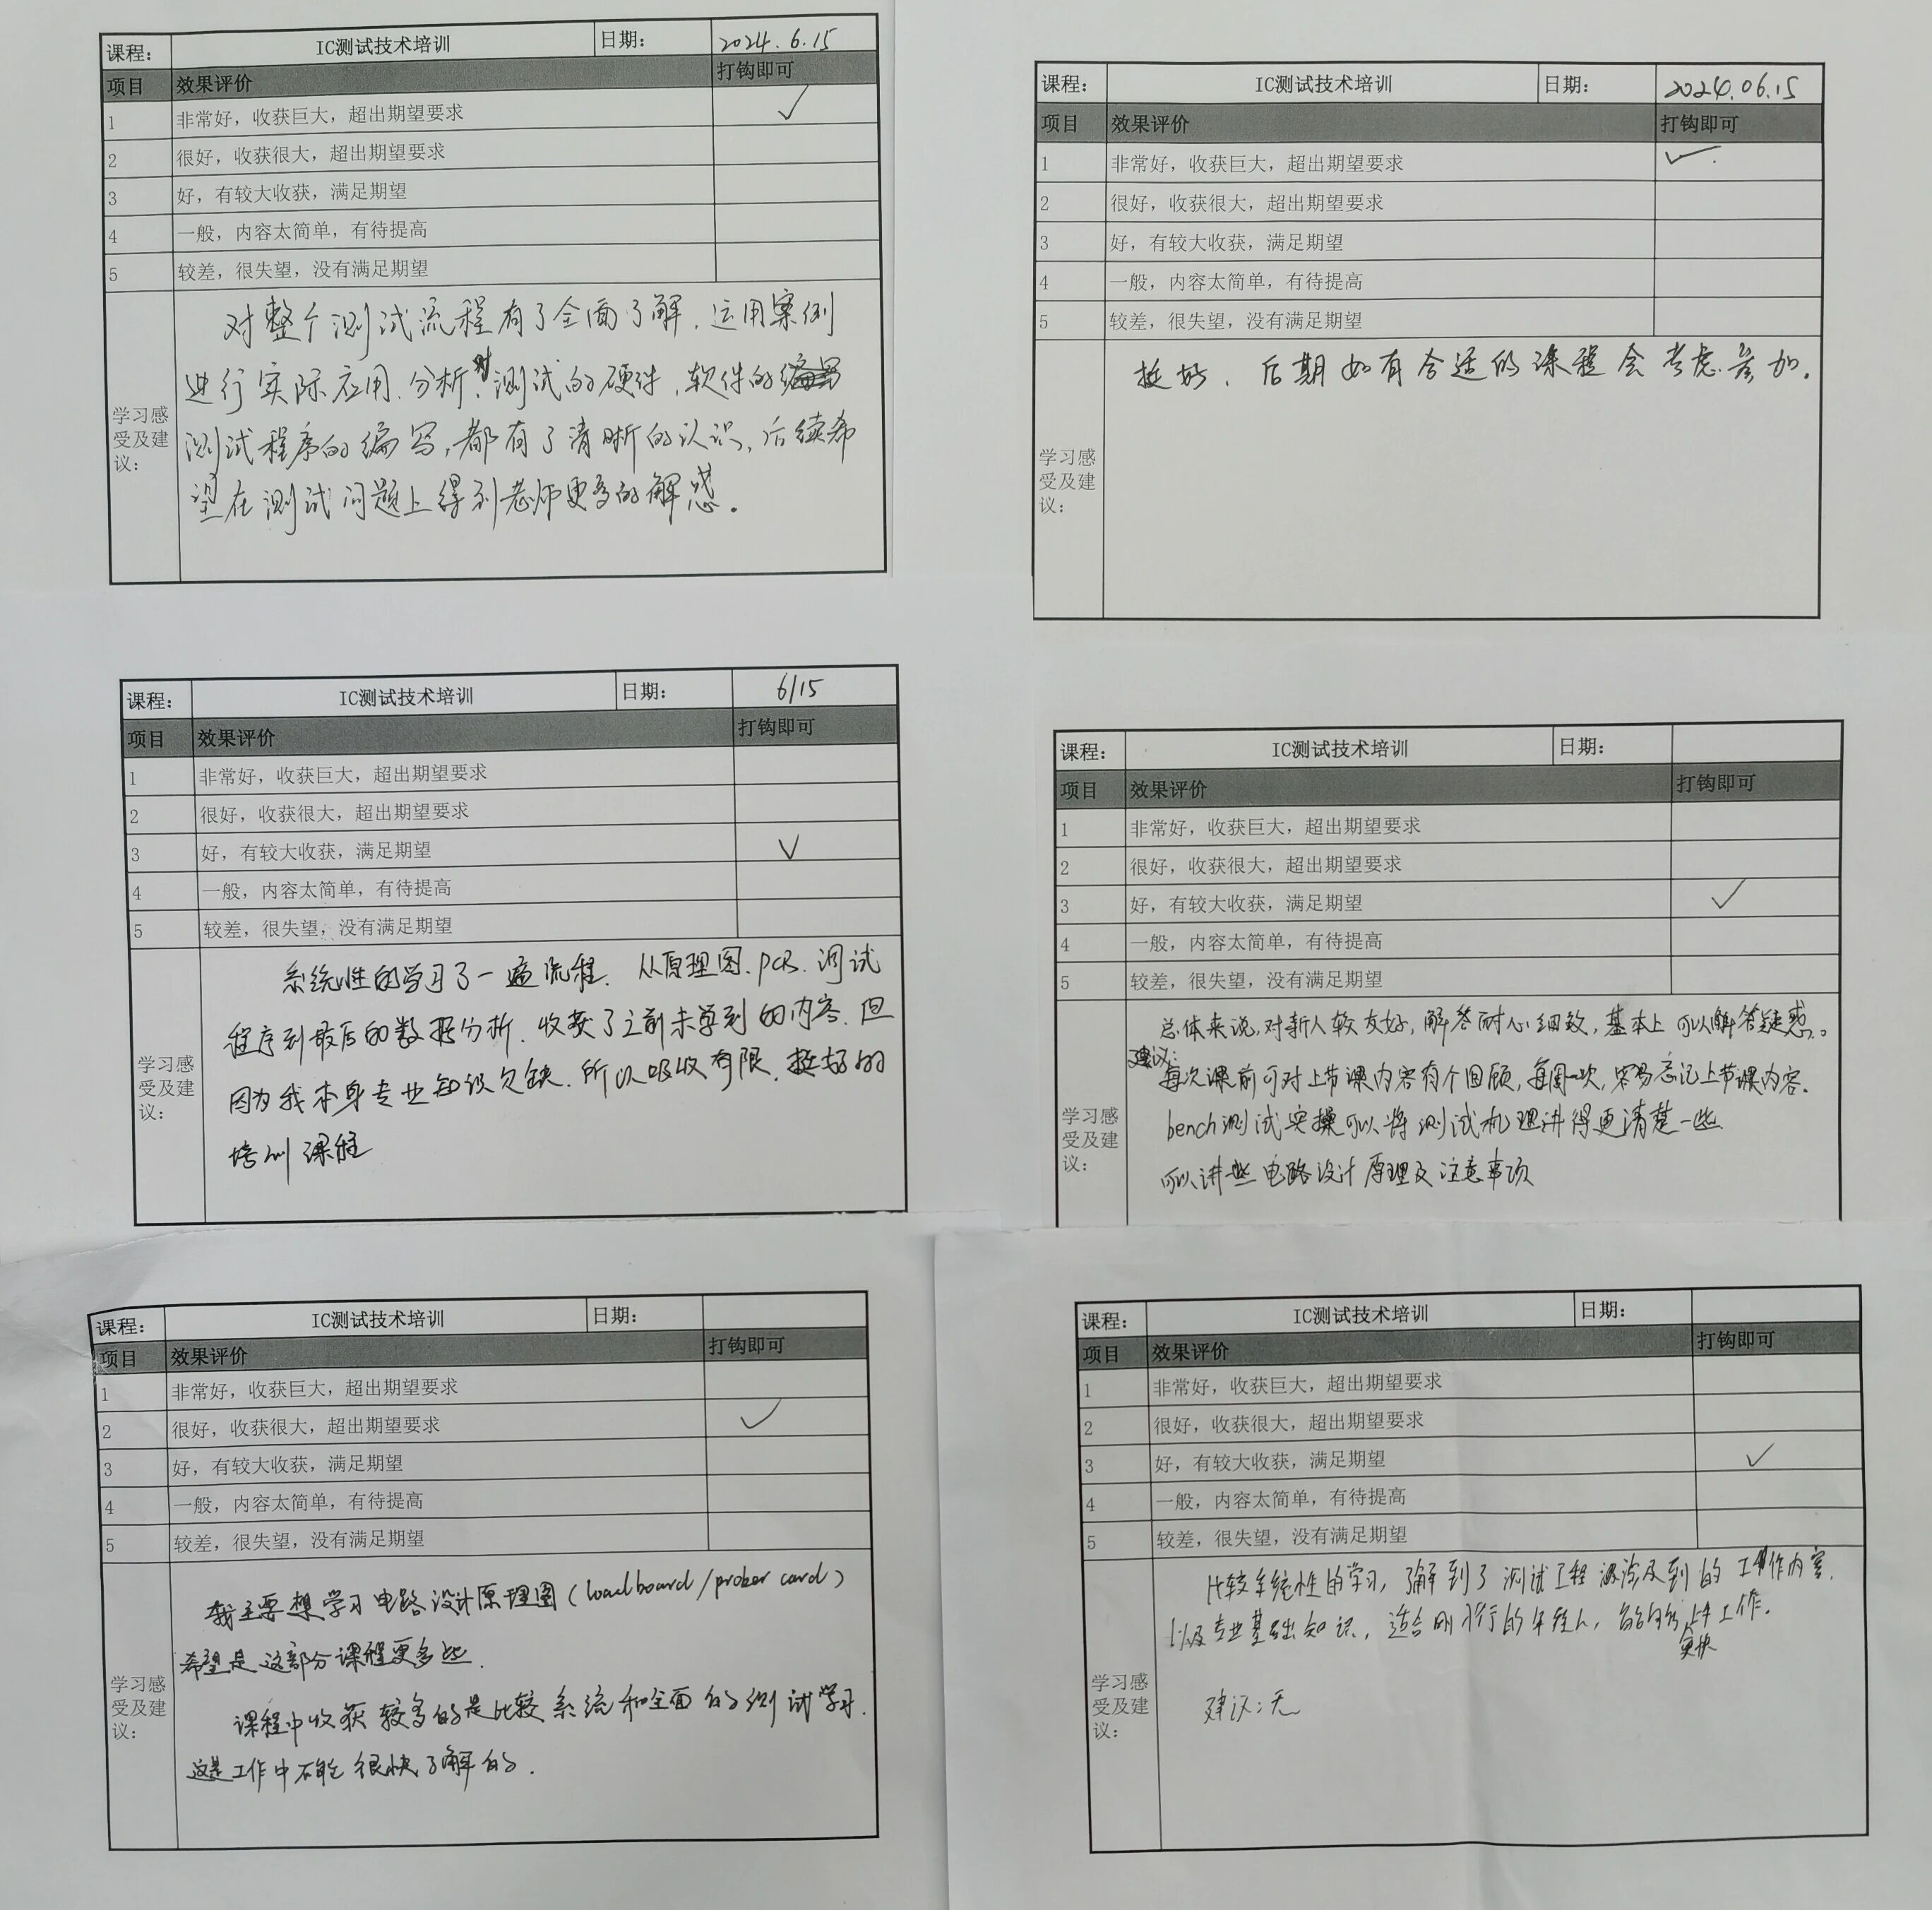 课程： IC测试技术培训 日期： 2024.6.15
项目 效果评价 打钩即可
1 非常好，收获巨大，超出期望要求 ✓
2 很好，收获很大，超出期望要求
3 好，有较大收获，满足期望
4 一般，内容太简单，有待提高
5 较差，很失望，没有满足期望
学习感
受及建
议：
对整个测试流程有了全面了解，运用案例
进行实际应用、分析，对测试的硬件、软件的
测试程序的编写，都有了清晰的认识，后续希
望在测试问题上得到老师更多的解惑。
课程： IC测试技术培训 日期： 2024.06.15
项目 效果评价 打钩即可
1 非常好，收获巨大，超出期望要求 ✓
2 很好，收获很大，超出期望要求
3 好，有较大收获，满足期望
4 一般，内容太简单，有待提高
5 较差，很失望，没有满足期望
学习感
受及建
议：
挺好、后期如有合适的课程会考虑参加。
课程： IC测试技术培训 日期： 6/15
项目 效果评价 打钩即可
1 非常好，收获巨大，超出期望要求
2 很好，收获很大，超出期望要求
3 好，有较大收获，满足期望 ✓
4 一般，内容太简单，有待提高
5 较差，很失望，没有满足期望
学习感
受及建
议：
系统性的学习了一遍流程、从原理图、PCB、测试
程序到最后的数据分析、收获了之前未学到的内容、但
因为我本身专业知识欠缺、所以吸收有限、挺好的
培训课程
课程： IC测试技术培训 日期：
项目 效果评价 打钩即可
1 非常好，收获巨大，超出期望要求
2 很好，收获很大，超出期望要求
3 好，有较大收获，满足期望 ✓
4 一般，内容太简单，有待提高
5 较差，很失望，没有满足期望
学习感
受及建
议：
总体来说，对新人较友好，解答耐心细致，基本上可以解答疑惑。
建议：
每次课前可对上节课内容有个回顾，每周一次，容易忘记上节课内容。
bench测试实操可以将测试机理讲得更清楚一些
可以讲些电路设计原理及注意事项
课程： IC测试技术培训 日期：
项目 效果评价 打钩即可
1 非常好，收获巨大，超出期望要求
2 很好，收获很大，超出期望要求 ✓
3 好，有较大收获，满足期望
4 一般，内容太简单，有待提高
5 较差，很失望，没有满足期望
学习感
受及建
议：
我主要想学习电路设计原理图（loadboard/prober card）
希望是这部分课程更多些.
课程中收获较多的是比较系统和全面的测试学习.
这是工作中不能很快了解的.
课程： IC测试技术培训 日期：
项目 效果评价 打钩即可
1 非常好，收获巨大，超出期望要求
2 很好，收获很大，超出期望要求
3 好，有较大收获，满足期望 ✓
4 一般，内容太简单，有待提高
5 较差，很失望，没有满足期望
学习感
受及建
议：
比较系统性的学习，了解到了测试工程涉及到的工作内容.
以及专业基础知识，适合刚入行的年轻人，能够更快上手工作.
建议：无